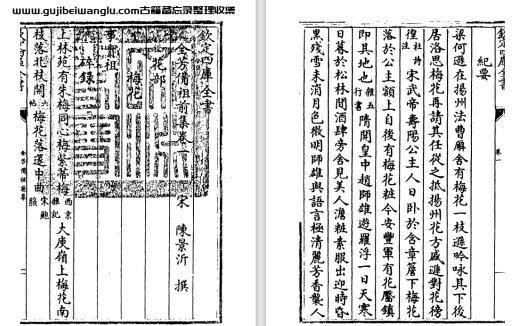 www.gujibeiwanglu.com古籍备忘录整理收集
欽定四庫全書
全芳備祖前集卷一
宋 陳景沂 撰
花部
梅花
事實祖
碎錄
上林苑有朱梅同心梅紫蒂梅西京雜記大庾嶺上梅花南
枝落北枝開六帖梅花落邊中曲宋鮑
全芳備祖前集
欽定四庫全書
卷一
紀要
梁何遜在揚州法曹廨舍有梅花一枝遜吟咏其下後
居洛思梅花再請其任從之抵揚州花方盛遜對花徬
徨杜詩注宋武帝壽陽公主人日卧於含章簷下梅花
落於公主額上自後有梅花粧今安豐軍有花靨鎮
即其地也雜五行書隋開皇中趙師雄遊羅浮一日天寒
日暮於松林間酒肆旁舍見美人澹粧素服出迎時昏
黑殘雪未消月色微明師雄與語言極清麗芳香襲人